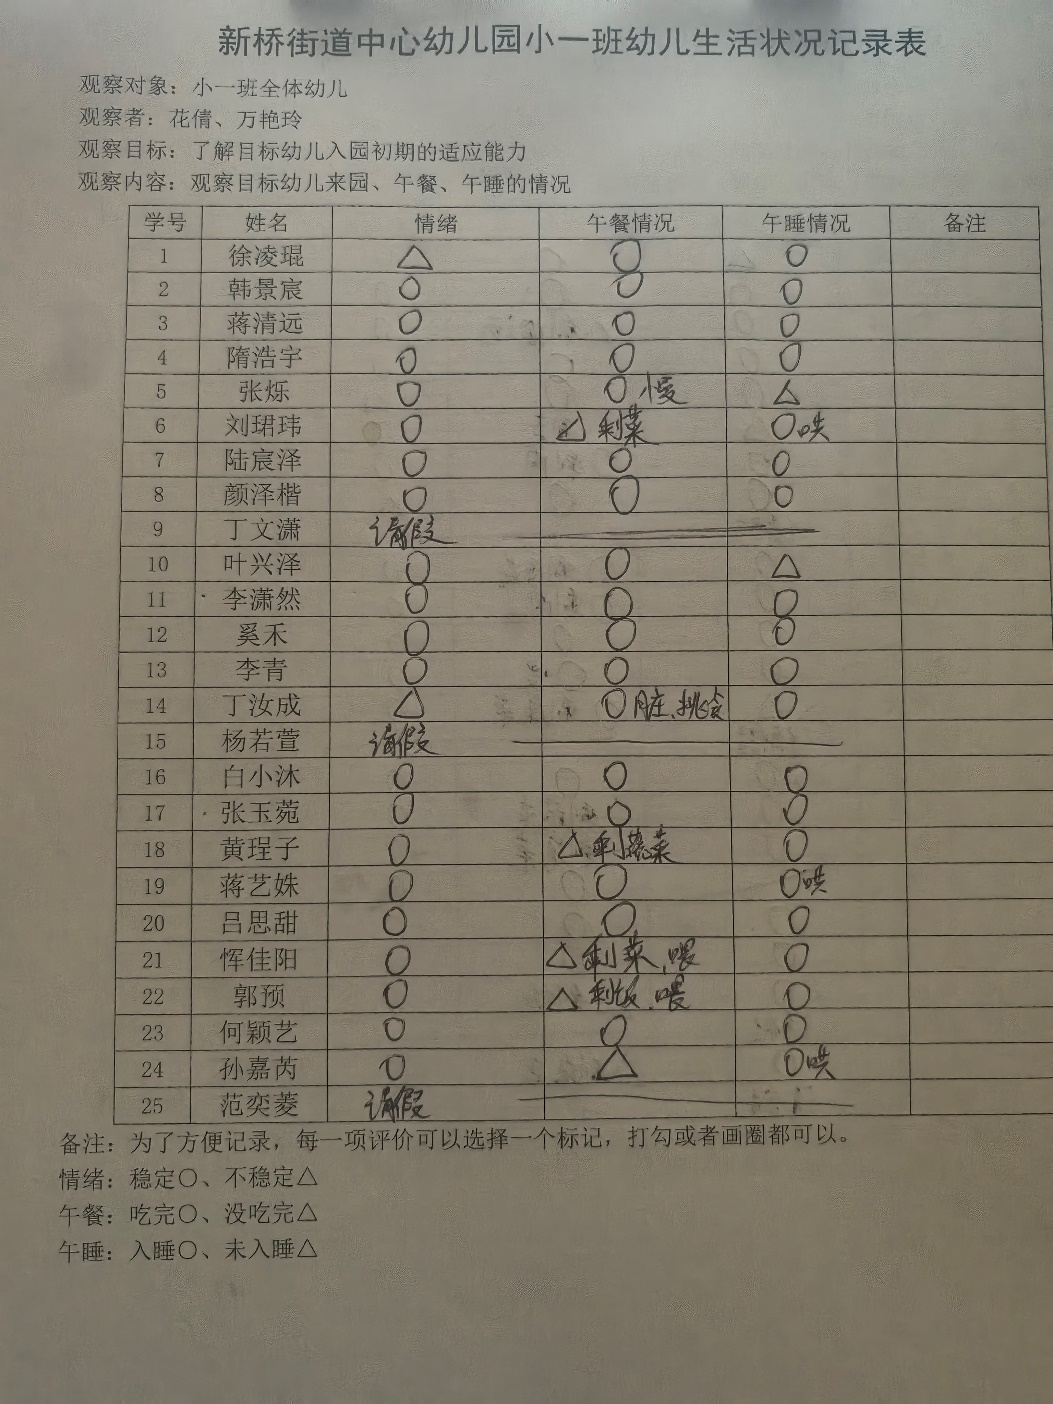 新桥街道中心幼儿园小一班幼儿生活状况记录表
观察对象：小一班全体幼儿
观察者：花倩、万艳玲
观察目标：了解目标幼儿入园初期的适应能力
观察内容：观察目标幼儿来园、午餐、午睡的情况
学号 姓名 情绪 午餐情况 午睡情况 备注
1 徐凌琨 △ ○ ○
2 韩景宸 ○ ○ ○
3 蒋清远 ○ ○ ○
4 隋浩宇 ○ ○ ○
5 张烁 ○ ○ 慢 △
6 刘珺玮 ○ △ 剩菜 ○哄
7 陆宸泽 ○ ○ ○
8 颜泽楷 ○ ○ ○
9 丁文潇 请假
10 叶兴泽 ○ ○ △
11 李潇然 ○ ○ ○
12 奚禾 ○ ○ ○
13 李青 ○ ○ ○
14 丁汝成 △ ○ 脏、挑食 ○
15 杨若萱 请假
16 白小沐 ○ ○ ○
17 张玉菀 ○ ○ ○
18 黄珵子 ○ △ 剩蔬菜 ○
19 蒋艺姝 ○ ○ ○哄
20 吕思甜 ○ ○ ○
21 恽佳阳 ○ △ 剩菜、喂 ○
22 郭预 ○ △ 剩饭、喂 ○
23 何颖艺 ○ ○ ○
24 孙嘉芮 ○ △ ○哄
25 范奕菱 请假
备注：为了方便记录，每一项评价可以选择一个标记，打勾或者画圈都可以。
情绪：稳定○、不稳定△
午餐：吃完○、没吃完△
午睡：入睡○、未入睡△